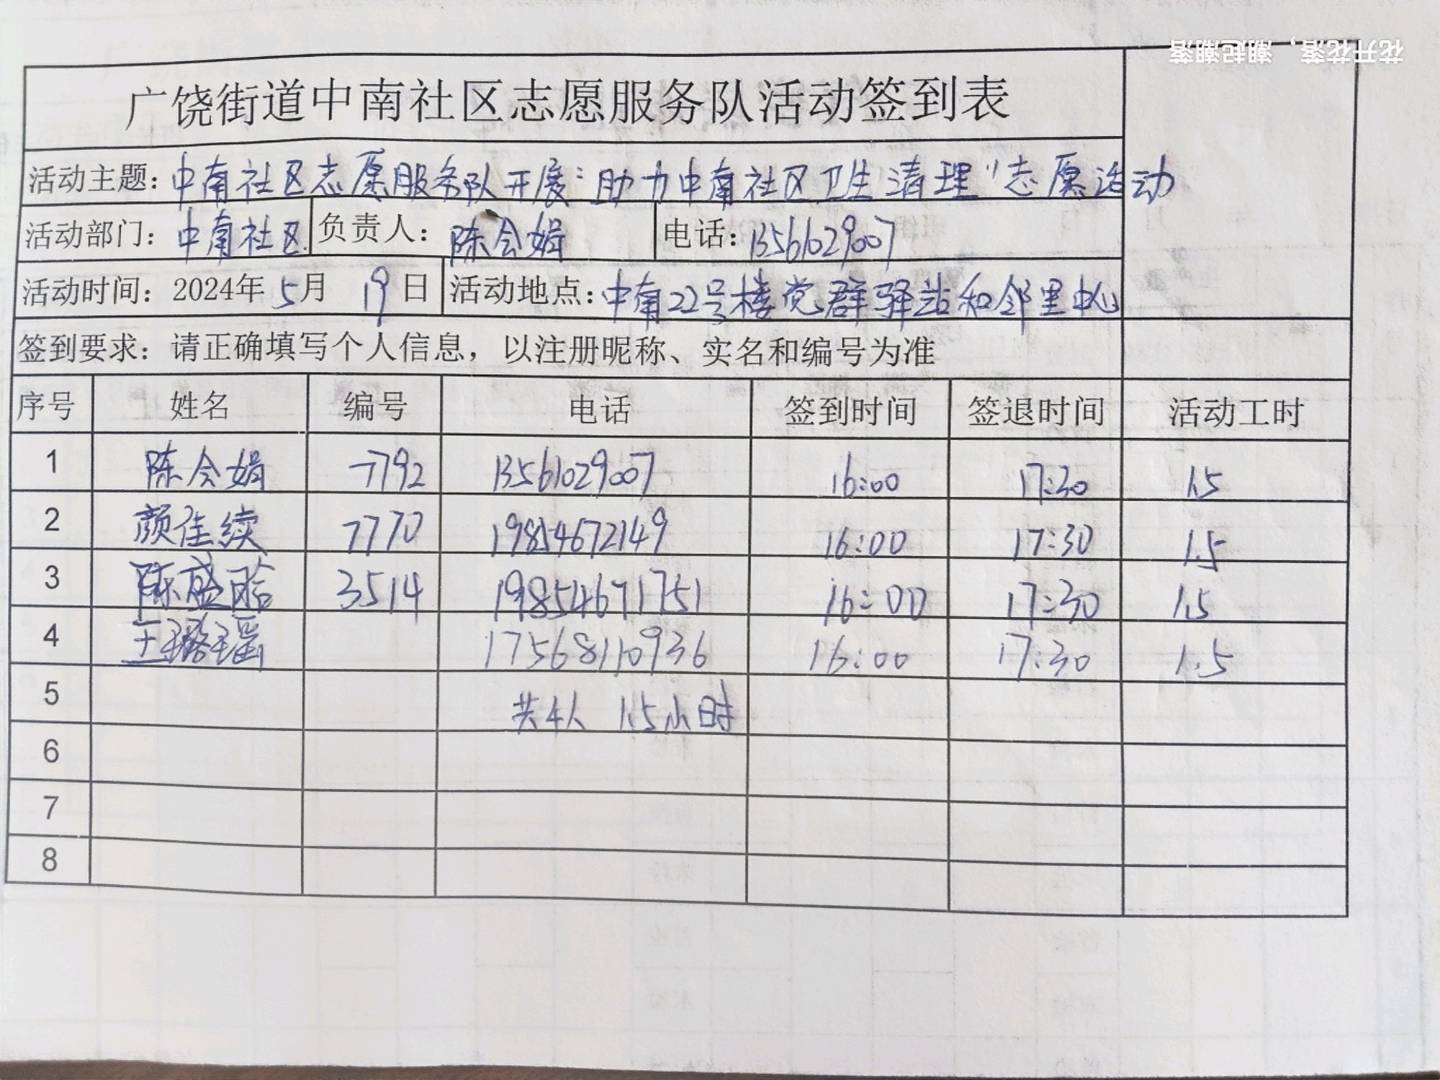 花开花落，潮起潮落
广饶街道中南社区志愿服务队活动签到表
活动主题：中南社区志愿服务队开展“助力中南社区卫生清理”志愿活动
活动部门：中南社区 负责人：陈会娟 电话：13561029007
活动时间：2024年5月19日 活动地点：中南22号楼党群驿站和邻里中心
签到要求：请正确填写个人信息，以注册昵称、实名和编号为准
序号 姓名 编号 电话 签到时间 签退时间 活动工时
1 陈会娟 7792 13561029007 16:00 17:30 1.5
2 颜佳续 7770 19854672149 16:00 17:30 1.5
3 陈盛晗 3514 19854671751 16:00 17:30 1.5
4 王璐瑶 17568110936 16:00 17:30 1.5
5 共4人 1.5小时
6
7
8